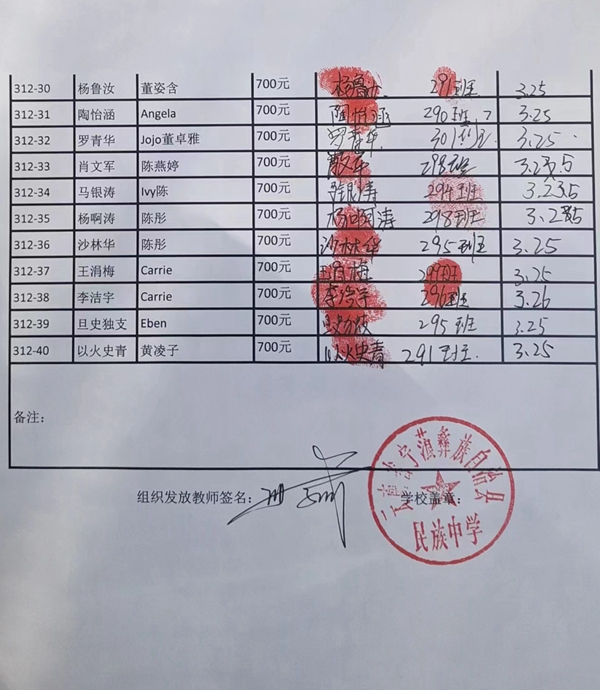 312-30 杨鲁汝 董姿含 700元 杨鲁汝 291班 3.25
312-31 陶怡涵 Angela 700元 陶怡涵 290班 3.25
312-32 罗青华 Jojo董卓雅 700元 罗青华 301班 3.25
312-33 肖文军 陈燕婷 700元 298班
312-34 马银涛 Ivy陈 700元 294班
312-35 杨啊涛 陈彤 700元 杨啊涛 298班
312-36 沙林华 陈彤 700元 沙林华 295班 3.25
312-37 王涓梅 Carrie 700元 3.25
312-38 李洁宇 Carrie 700元 李洁宇 296班 3.26
312-39 旦史独支 Eben 700元 295班 3.25
312-40 以火史青 黄凌子 700元 以火史青 291班 3.25
备注：
组织发放教师签名：
学校盖章：
云南省宁蒗彝族自治县
民族中学